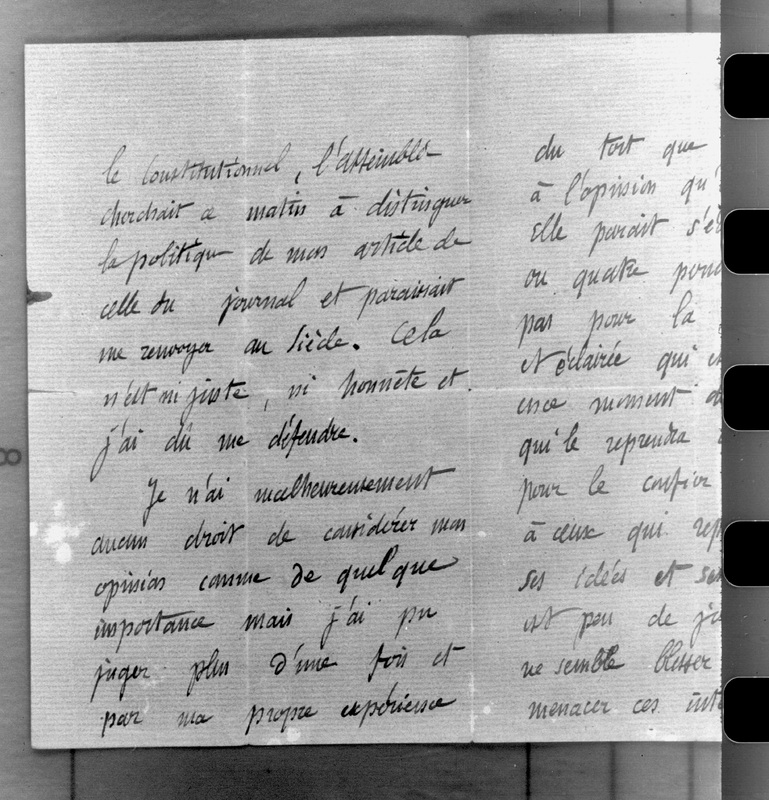 le Constitutionnel, l'assemblé
cherchait ce matin à distinguer
la politique de mon article de
celle du journal et paraissait
me renvoyer au Siècle. Cela
n'est ni juste, ni honnête et
j'ai dû me défendre.
Je n'ai malheureusement
aucun droit de considérer mon
opinion comme de quelque
importance mais j'ai pu
juger plus d'une fois et
par ma propre expérience
du tort que
à l'opinion qu'
elle parait s'
ou quatre
pas pour la
et éclairée qui
en ce moment
qui le reprendra
pour le confier
à ceux qui
ses idées et
est peu de
ne semble blesser
menacer ces
8